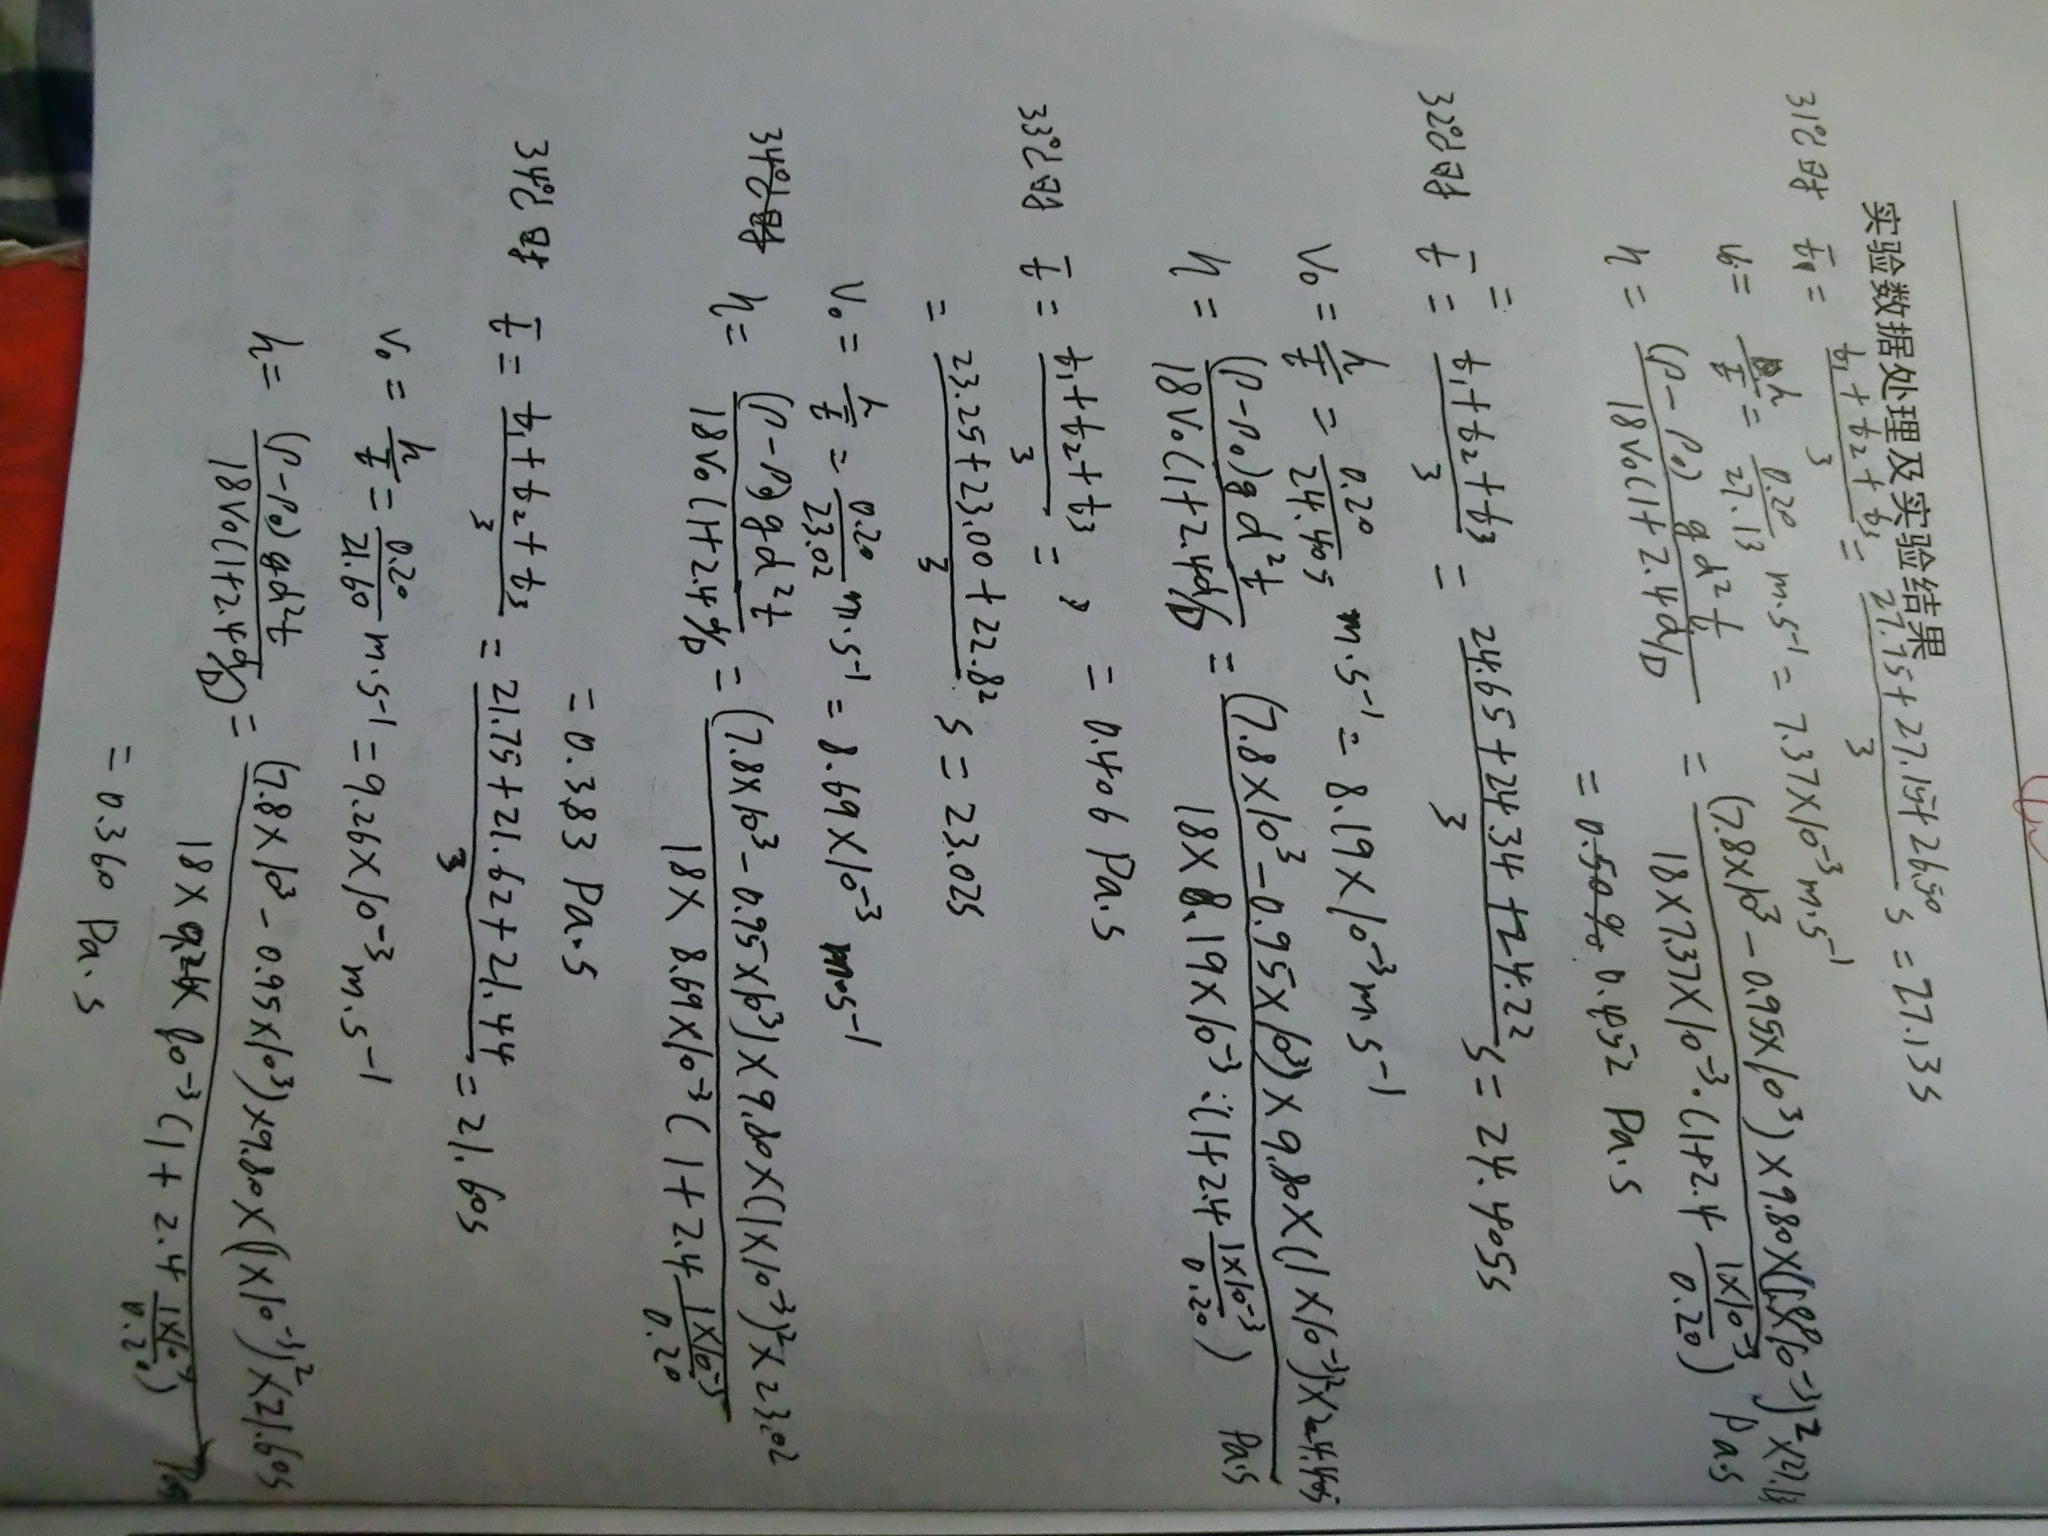 实验数据处理及实验结果
31℃时 t̄₀ = (t₁+t₂+t₃)/3 = (27.75+27.15+26.50)/3 s = 27.13s
v₀ = h/t̄ = 0.20/27.13 m·s⁻¹ = 7.37×10⁻³ m·s⁻¹
η = (ρ-ρ₀)gd²t/18v₀(1+2.4d/D) = (7.8×10³-0.95×10³)×9.80×(1×10⁻³)²×27.13/18×7.37×10⁻³·(1+2.4 1×10⁻³/0.20) Pa·s
= 0.452 Pa·s
=
32℃时 t̄ = (t₁+t₂+t₃)/3 = (24.65+24.34+24.22)/3 s = 24.405s
v₀ = h/t̄ = 0.20/24.405 m·s⁻¹ = 8.19×10⁻³ m·s⁻¹
η = (ρ-ρ₀)gd²t/18v₀(1+2.4d/D) = (7.8×10³-0.95×10³)×9.80×(1×10⁻³)²×24.405/18×8.19×10⁻³·(1+2.4 1×10⁻³/0.20) Pa·s
= 0.406 Pa·s
33℃时 t̄ = (t₁+t₂+t₃)/3 =
= (23.25+23.00+22.82)/3 s = 23.02s
v₀ = h/t̄ = 0.20/23.02 m·s⁻¹ = 8.69×10⁻³ m·s⁻¹
34℃时 η = (ρ-ρ₀)gd²t/18v₀(1+2.4d/D) = (7.8×10³-0.95×10³)×9.80×(1×10⁻³)²×23.02/18×8.69×10⁻³(1+2.4 1×10⁻³/0.20
= 0.383 Pa·s
34℃时 t̄ = (t₁+t₂+t₃)/3 = (21.75+21.62+21.44)/3 = 21.60s
v₀ = h/t̄ = 0.20/21.60 m·s⁻¹ = 9.26×10⁻³ m·s⁻¹
η = (ρ-ρ₀)gd²t/18v₀(1+2.4d/D) = (7.8×10³-0.95×10³)×9.80×(1×10⁻³)²×21.60s/18×9.26×10⁻³(1+2.4 1×10⁻³/0.20) Pa·s
= 0.360 Pa·s